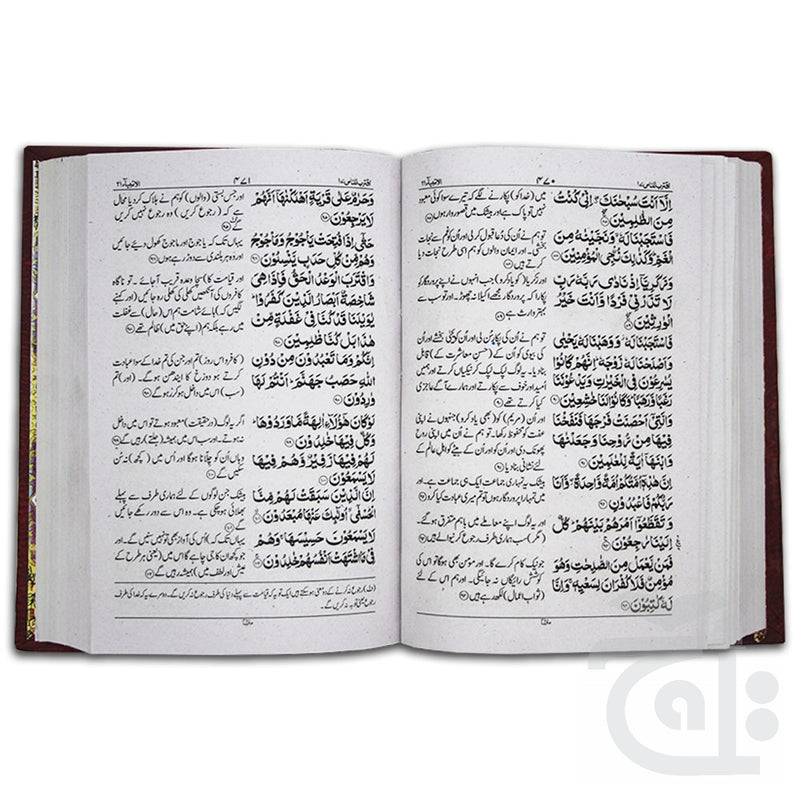 اقترب للناس ١٧
٤٧٠
الانبیآء ٢١
اِلَّاۤ اَنْتَ سُبْحٰنَكَ ۖ اِنِّیْ كُنْتُ
مِنَ الظّٰلِمِیْنَ
فَاسْتَجَبْنَا لَهٗ ۙ وَنَجَّیْنٰهُ مِنَ
الْغَمِّ ؕ وَكَذٰلِكَ نُـْۨجِی الْمُؤْمِنِیْنَ
وَزَكَرِیَّاۤ اِذْ نَادٰی رَبَّهٗ رَبِّ
لَا تَذَرْنِیْ فَرْدًا وَّاَنْتَ خَیْرُ
الْوٰرِثِیْنَ
فَاسْتَجَبْنَا لَهٗ ۚ وَوَهَبْنَا لَهٗ یَحْیٰی
وَاَصْلَحْنَا لَهٗ زَوْجَهٗ ؕ اِنَّهُمْ كَانُوْا
یُسٰرِعُوْنَ فِی الْخَیْرٰتِ وَیَدْعُوْنَنَا
رَغَبًا وَّرَهَبًا ؕ وَكَانُوْا لَنَا خٰشِعِیْنَ
وَالَّتِیْۤ اَحْصَنَتْ فَرْجَهَا فَنَفَخْنَا
فِیْهَا مِنْ رُّوْحِنَا وَجَعَلْنٰهَا
وَابْنَهَاۤ اٰیَةً لِّلْعٰلَمِیْنَ
اِنَّ هٰذِهٖۤ اُمَّتُكُمْ اُمَّةً وَّاحِدَةً ۖ وَّاَنَا
رَبُّكُمْ فَاعْبُدُوْنِ
وَتَقَطَّعُوْۤا اَمْرَهُمْ بَیْنَهُمْ ؕ كُلٌّ
اِلَیْنَا رٰجِعُوْنَ
فَمَنْ یَّعْمَلْ مِنَ الصّٰلِحٰتِ وَهُوَ
مُؤْمِنٌ فَلَا كُفْرَانَ لِسَعْیِهٖ ۚ وَاِنَّا
لَهٗ كٰتِبُوْنَ
میں (خدا کو) پکارنے لگے کہ تیرے سوا کوئی معبود
نہیں تو پاک ہے اور بیشک میں قصوروار ہوں
تو ہم نے اُن کی دُعا قبول کر لی اور اُن کو غم سے نجات
بخشی۔ اور ایمان والوں کو ہم اسی طرح نجات دیا
کرتے ہیں
اور زکریا (کو یاد کرو) جب انہوں نے اپنے پروردگار کو
پکارا کہ پروردگار مجھے اکیلا نہ چھوڑ۔ اور تو سب سے
بہتر وارث ہے
تو ہم نے اُن کی پکار سُن لی اور اُن کو یحیٰی بخشے اور اُن
کی بیوی کو اُن کے (حسن معاشرت کے) قابل
بنا دیا۔ یہ لوگ لپک لپک کر نیکیاں کرتے اور ہمیں
اُمید اور خوف سے پکارتے اور ہمارے آگے عاجزی
کیا کرتے تھے
اور اُن (مریم) کو (بھی یاد کرو) جنہوں نے اپنی
عفت کو محفوظ رکھا۔ تو ہم نے ان میں اپنی روح
پھونک دی اور اُن کو اور اُن کے بیٹے کو اہل عالم کے
لئے نشانی بنا دیا
یہ تمہاری جماعت ایک ہی جماعت ہے۔ اور
میں تمہارا پروردگار ہوں تو تم میری عبادت کیا کرو
اور یہ لوگ اپنے معاملے میں باہم متفرق ہو گئے۔
(مگر) سب ہماری طرف رجوع کرنیوالے ہیں
جو نیک کام کرے گا۔ اور مؤمن بھی ہوگا تو اس کی
کوشش رائیگاں نہ جائیگی۔ اور ہم اس کے لئے
(ثواب اعمال) لکھ رہے ہیں
اقترب للناس ١٧
٤٧١
الانبیآء ٢١
وَحَرٰمٌ عَلٰی قَرْیَةٍ اَهْلَكْنٰهَاۤ اَنَّهُمْ
لَا یَرْجِعُوْنَ
حَتّٰۤی اِذَا فُتِحَتْ یَاْجُوْجُ وَمَاْجُوْجُ
وَهُمْ مِّنْ كُلِّ حَدَبٍ یَّنْسِلُوْنَ
وَاقْتَرَبَ الْوَعْدُ الْحَقُّ فَاِذَا هِیَ
شَاخِصَةٌ اَبْصَارُ الَّذِیْنَ كَفَرُوْا ؕ
یٰوَیْلَنَا قَدْ كُنَّا فِیْ غَفْلَةٍ مِّنْ
هٰذَا بَلْ كُنَّا ظٰلِمِیْنَ
اِنَّكُمْ وَمَا تَعْبُدُوْنَ مِنْ دُوْنِ
اللّٰهِ حَصَبُ جَهَنَّمَ ؕ اَنْتُمْ لَهَا
وٰرِدُوْنَ
لَوْ كَانَ هٰۤؤُلَآءِ اٰلِهَةً مَّا وَرَدُوْهَا ؕ
وَكُلٌّ فِیْهَا خٰلِدُوْنَ
لَهُمْ فِیْهَا زَفِیْرٌ وَّهُمْ فِیْهَا
لَا یَسْمَعُوْنَ
اِنَّ الَّذِیْنَ سَبَقَتْ لَهُمْ مِّنَّا
الْحُسْنٰۤی ۙ اُولٰٓئِكَ عَنْهَا مُبْعَدُوْنَ
لَا یَسْمَعُوْنَ حَسِیْسَهَا ۚ وَهُمْ
فِیْ مَا اشْتَهَتْ اَنْفُسُهُمْ خٰلِدُوْنَ
اور جس بستی (والوں) کو ہم نے ہلاک کر دیا محال
ہے کہ (رجوع کریں) وہ رجوع نہیں کریں
گے
یہاں تک کہ یاجوج اور ماجوج کھول دیئے جائیں
اور وہ ہر بلندی سے دوڑ رہے ہوں
اور قیامت کا) سچا وعدہ قریب آجائے۔ تو ناگاہ
کافروں کی آنکھیں کھلی کی کھلی رہ جائیں (اور کہنے
لگیں کہ) ہائے شامت ہم اس (حال) سے غفلت
میں رہے بلکہ ہم (اپنے حق میں) ظالم تھے
(کافرو اس روز) تم اور جن کی تم خدا کے سوا عبادت
کرتے ہو دوزخ کا ایندھن ہوگے۔ (اور) تم
(سب) اس میں داخل ہو کر رہو گے
اگر یہ لوگ (درحقیقت) معبود ہوتے تو اس میں داخل
نہ ہوتے۔ اور سب اس میں ہمیشہ (جلتے) رہیں گے
وہاں اُن کو چِلّانا ہوگا اور اُس میں (کچھ) نہ سُن
سکیں گے
بیشک جن لوگوں کے لئے ہماری طرف سے پہلے
بھلائی ہو چکی ہے۔ وہ اس سے دور رکھے جائیں
گے
(یہاں تک کہ) اُس کی آواز بھی تو نہیں سنیں گے۔ اور
جو کچھ ان کا جی چاہے گا اس میں (یعنی ہر طرح کے
عیش اور لطف میں) ہمیشہ رہیں گے
(ف۱) رجوع نہ کرنے کے دو معنی ہو سکتے ہیں ایک تو یہ کہ قیامت سے پہلے دنیا کی طرف رجوع نہ کریں گے۔ دوسرے یہ کہ خدا کی طرف
رجوع یعنی توبہ نہ کریں گے۔